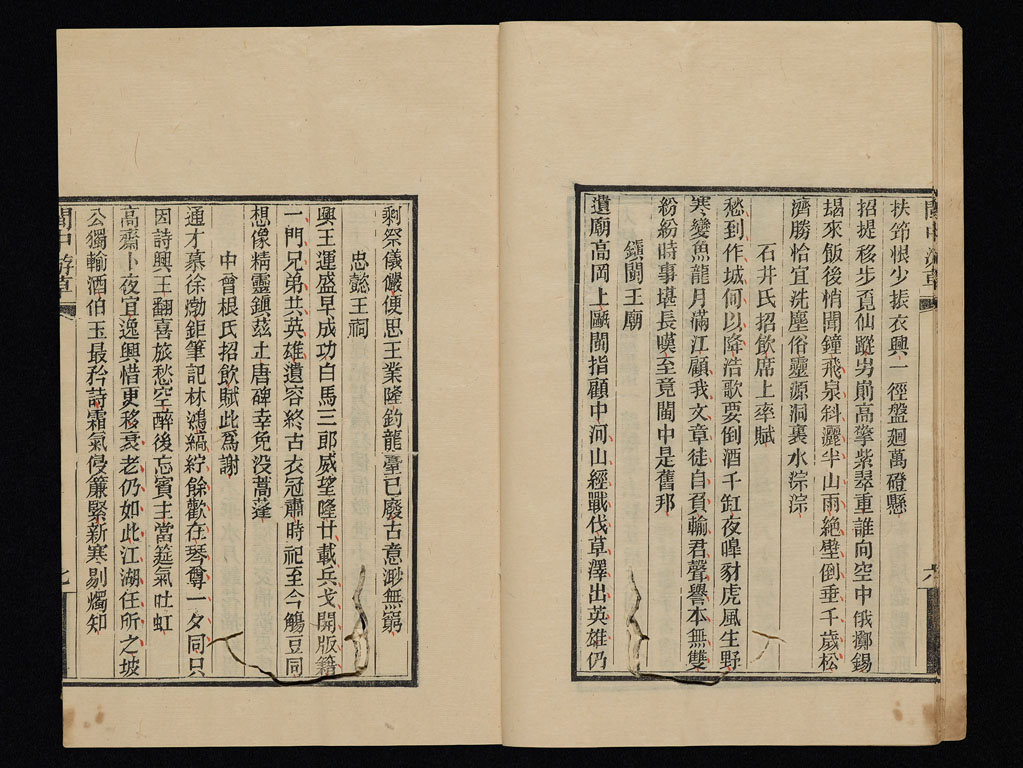 扶筇恨少振衣興一徑盤廻萬磴懸
招提移步覓仙蹤屴崱高擎紫翠重誰向空中俄擲錫
朅來飯後悄聞鐘飛泉斜灑半山雨絶壁倒垂千歲松
濟勝恰宜洗塵俗靈源洞裏水淙淙
石井氏招飮席上率賦
愁到作城何以降浩歌要倒酒千缸夜嘷豺虎風生野
寒變魚龍月滿江顧我文章徒自負輸君聲譽本無雙
紛紛時事堪長嘆至竟閩中是舊邦
鎭閩王廟
遺廟高岡上甌閩指顧中河山經戰伐草澤出英雄仍
閩中游草
六
剩祭儀嚴便思王業隆釣龍臺已廢古意渺無窮
忠懿王祠
興王運盛早成功白馬三郎威望隆廿載兵戈開版籍
一門兄弟共英雄遺容終古衣冠肅時祀至今觴豆同
想像精靈鎭茲土唐碑幸免没蒿蓬
中曾根氏招飮賦此爲謝
通才慕徐渤鉅筆記林鴻縞紵餘歡在琴尊一夕同只
因詩興王翻喜旅愁空醉後忘賓主當筵氣吐虹
高齋卜夜宜逸興惜更移衰老仍如此江湖任所之坡
公獨輸酒伯玉最矜詩霜氣侵簾緊新寒剔燭知
閩中游草
七